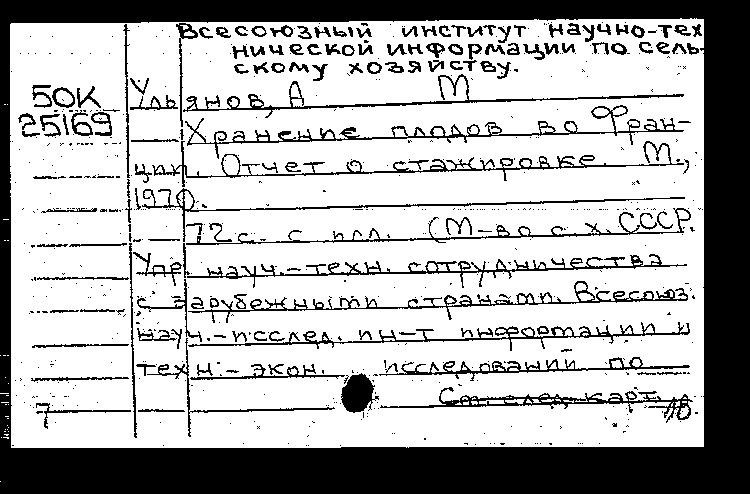 Всесоюзный институт научно-тех
нической информации по сель-
скому хозяйству.
50К
25169
Ульянов, А М
Хранение плодов во Фран-
ции. Отчет о стажировке. М.,
1970.
72 с. с илл. (М-во с. х. СССР.
Упр. науч.-техн. сотрудничества
с зарубежными странами. Всесоюз.
науч.-исслед. ин-т информации и
техн.-экон. исследований по
См. след. карт.
7